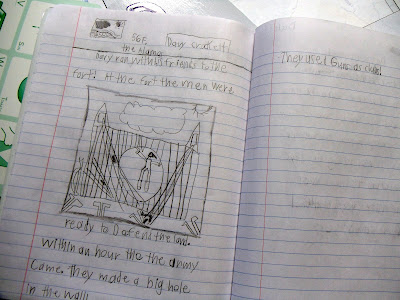 SGF
Davy crockett
the Alamo
Davy ran with his friends to the
fort! At the fort the men were
ready to Defend the land.
within an hour the the army
came. They made a big hole
in the wall!
They used Guns as clubs!